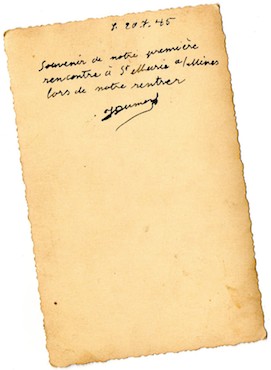 Souvenir de notre première
rencontre à Ste Marie a/Mines
lors de notre rentrer